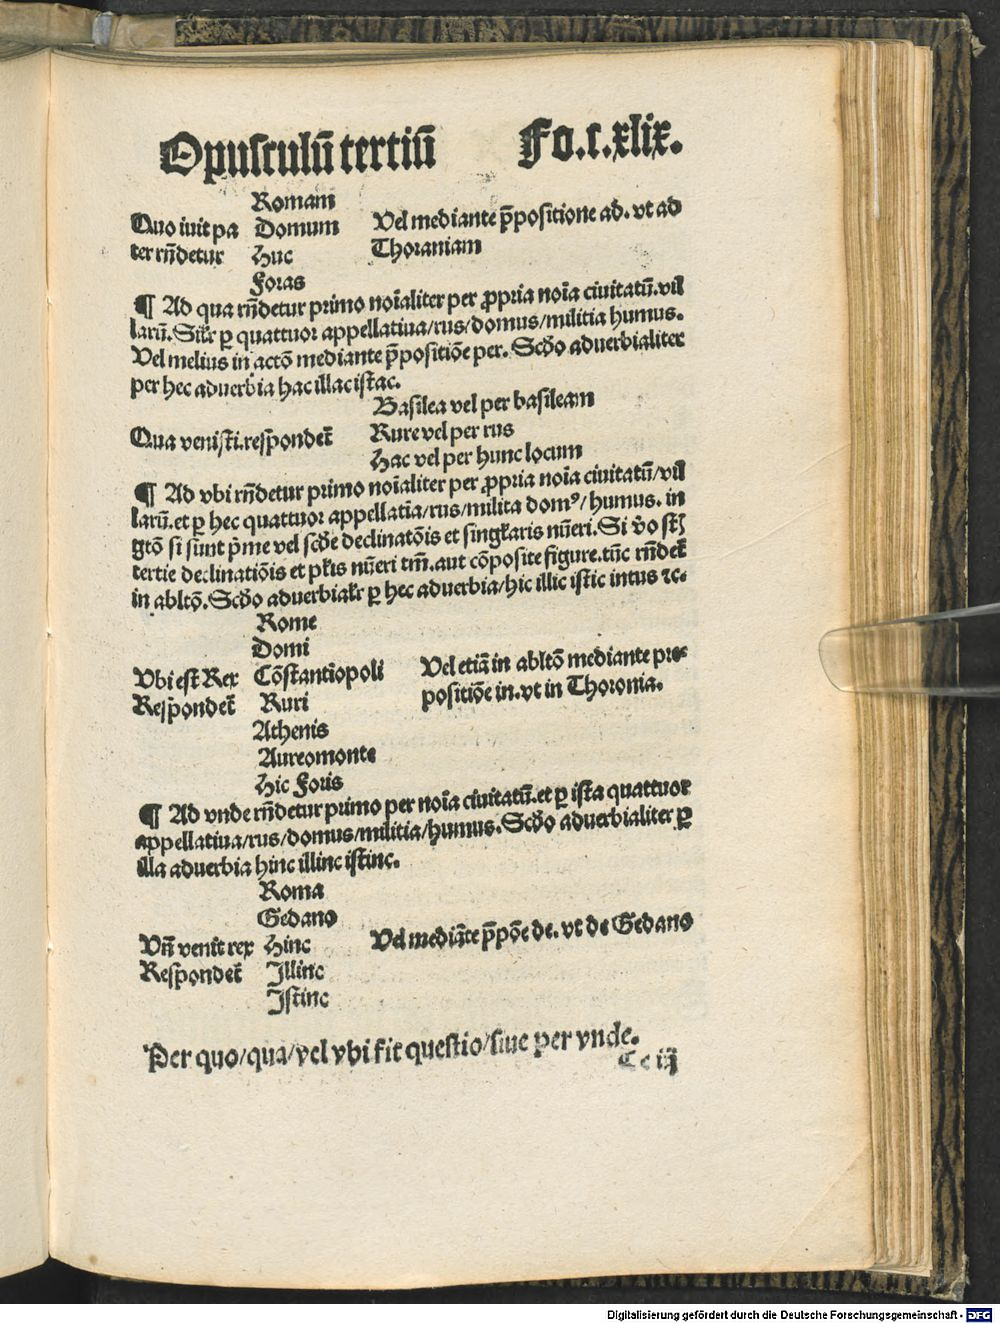 Opusculū tertiū Fo.c.xlix.
Romam
Quo iuit pa Domum Vel mediante p̄positione ad. vt ad
ter rn̄detur Huc Thoraniam
Foras
¶ Ad qua rn̄detur primo noīaliter per ꝓpria noīa ciuitatū.vil
larū. Silr ꝑ quattuor appellatiua/rus/domus/militia humus.
Vel melius in actō mediante p̄positiōe per. Scd̄o aduerbialiter
per hec aduerbia hac illac istac.
Basilea vel per basileam
Qua venisti.respondet̄ Rure vel per rus
Hac vel per hunc locum
¶ Ad vbi rn̄detur primo noīaliter per ꝓpria noīa ciuitatū/vil
larū.et ꝑ hec quattuor appellatīa/rus/milita domꝰ/humus. in
gtō si sunt p̄me vel scd̄e declinatōis et singl̄aris nūeri. Si v̄o st̄
tertie declinatiōis et pl̄is nūeri tm̄.aut cōposite figure.tūc rn̄det̄
in abltō. Scd̄o aduerbialr̄ ꝑ hec aduerbia/hic illic istic intus ⁊c.
Rome
Domi
Vbi est Rex Cōstantīopoli Vel etiā in abltō mediante pre-
Respondet̄ Ruri positiōe in.vt in Thoronia.
Athenis
Aureomonte
Hic Foris
¶ Ad vnde rn̄detur primo per noīa ciuitatū.et ꝑ ista quattuor
appellatiua/rus/domus/militia/humus. Scd̄o aduerbialiter ꝑ
illa aduerbia hinc illinc istinc.
Roma
Gedano
Vn̄ venit rex Hinc Vel mediāte p̄pōe de. vt de Gedano
Respondet̄ Illinc
Istinc
Per quo/qua/vel vbi fit questio/siue per vnde.
Cc iij